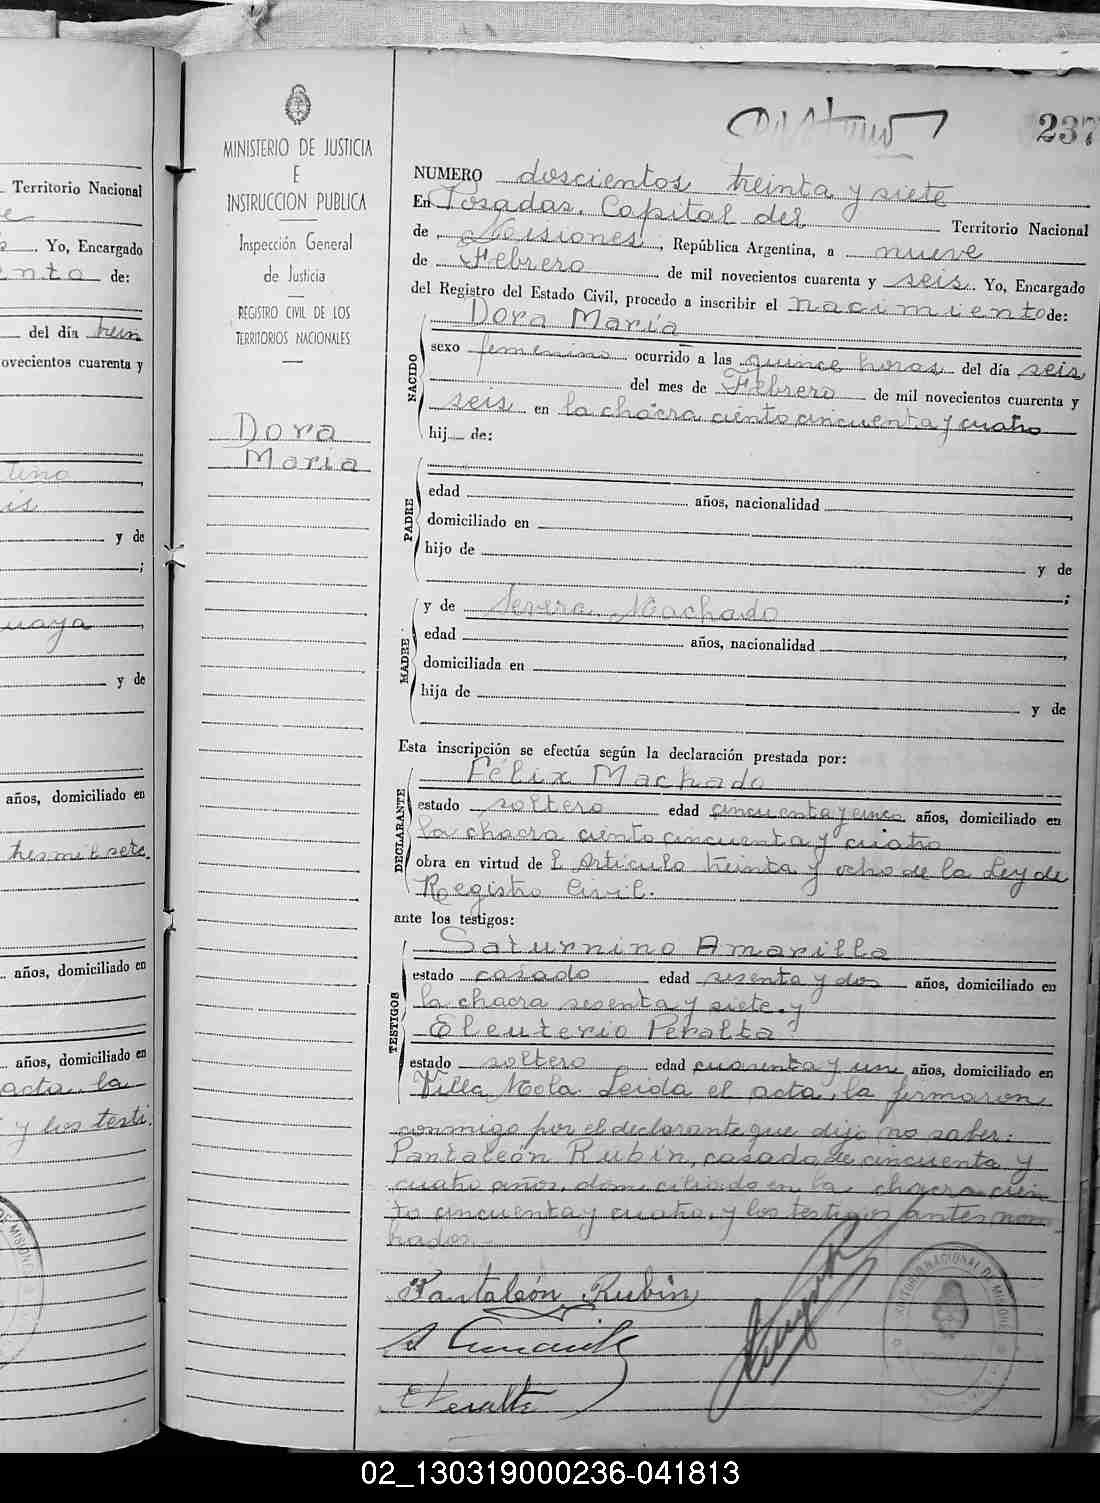 Territorio Nacional
Yo, Encargado
de:
del día trein
ovecientos cuarenta y
y de
;
uaya
y de
años, domiciliado en
tres mil sete.
años, domiciliado en
años, domiciliado en
acta, la
y los testi.
MINISTERIO DE JUSTICIA
E
INSTRUCCION PUBLICA
Inspección General
de Justicia
REGISTRO CIVIL DE LOS
TERRITORIOS NACIONALES
Dora
Maria
237
NUMERO doscientos treinta y siete
En Posadas, Capital del Territorio Nacional
de Misiones, República Argentina, a nueve
de Febrero de mil novecientos cuarenta y seis. Yo, Encargado
del Registro del Estado Civil, procedo a inscribir el nacimiento de:
NACIDO
Dora María
sexo femenino ocurrido a las quince horas del día seis
del mes de Febrero de mil novecientos cuarenta y
seis en la chacra ciento cincuenta y cuatro
hij de:
PADRE
edad años, nacionalidad ,
domiciliado en
hijo de y de
;
MADRE
y de Severa Machado
edad años, nacionalidad ,
domiciliada en
hija de y de
Esta inscripción se efectúa según la declaración prestada por:
DECLARANTE
Félix Machado
estado soltero edad cincuenta y cinco años, domiciliado en
la chacra ciento cincuenta y cuatro
obra en virtud de l artículo treinta y ocho de la Ley de
Registro Civil.
ante los testigos:
TESTIGOS
Saturnino Amarilla
estado casado edad sesenta y dos años, domiciliado en
la chacra sesenta y siete. y
Eleuterio Peralta
estado soltero edad cuarenta y un años, domiciliado en
Villa Mola. Leida el acta, la firmaron
conmigo por el declarante que dijo no saber:
Pantaleón Rubin, casado de cincuenta y
cuatro años, domiciliado en la chacra cien
to cincuenta y cuatro, y los testigos antes nom
brados.-
Pantaleón Rubin
E Peralta
02_130319000236-041813